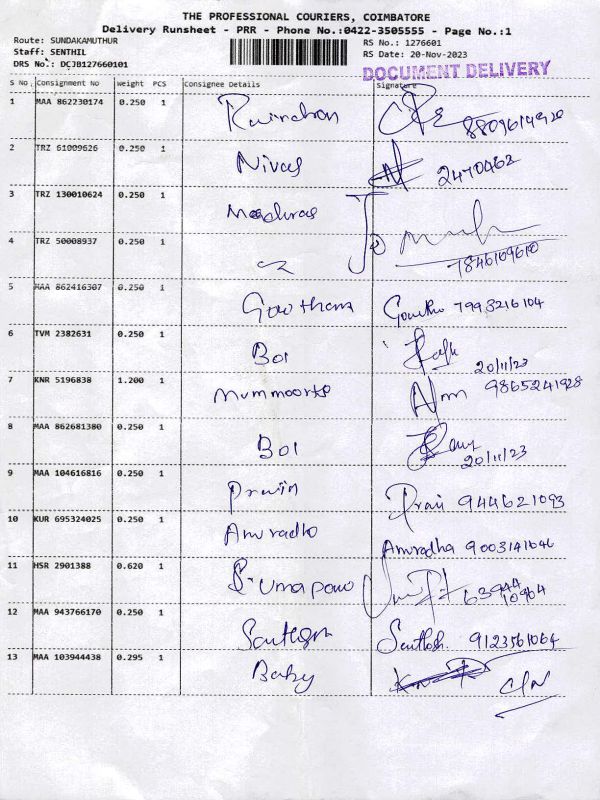 THE PROFESSIONAL COURIERS, COIMBATORE
Delivery Runsheet - PRR - Phone No.:0422-3505555 - Page No.:1
Route: SUNDAKAMUTHUR
RS No.: 1276601
Staff: SENTHIL
RS Date: 20-Nov-2023
DRS No.: DCJB127660101
DOCUMENT DELIVERY
S No. Consignment No Weight PCS Consignee Details Signature
1 MAA 862230174 0.250 1
2 TRZ 61009626 0.250 1 Nivas 2470462
3 TRZ 130010624 0.250 1
4 TRZ 50008937 0.250 1
5 MAA 862416307 0.250 1 Gowtham 7998216104
6 TVM 2382631 0.250 1 BOI 20/11/23
7 KNR 5196838 1.200 1 9865241928
8 MAA 862681380 0.250 1 BOI 20/11/23
9 MAA 104616816 0.250 1 944621093
10 KUR 695324025 0.250 1 Anuradha Anuradha 9003141646
11 HSR 2901388 0.620 1
12 MAA 943766170 0.250 1 Santhosh Santhosh. 9123561064
13 MAA 103944438 0.295 1 Baby